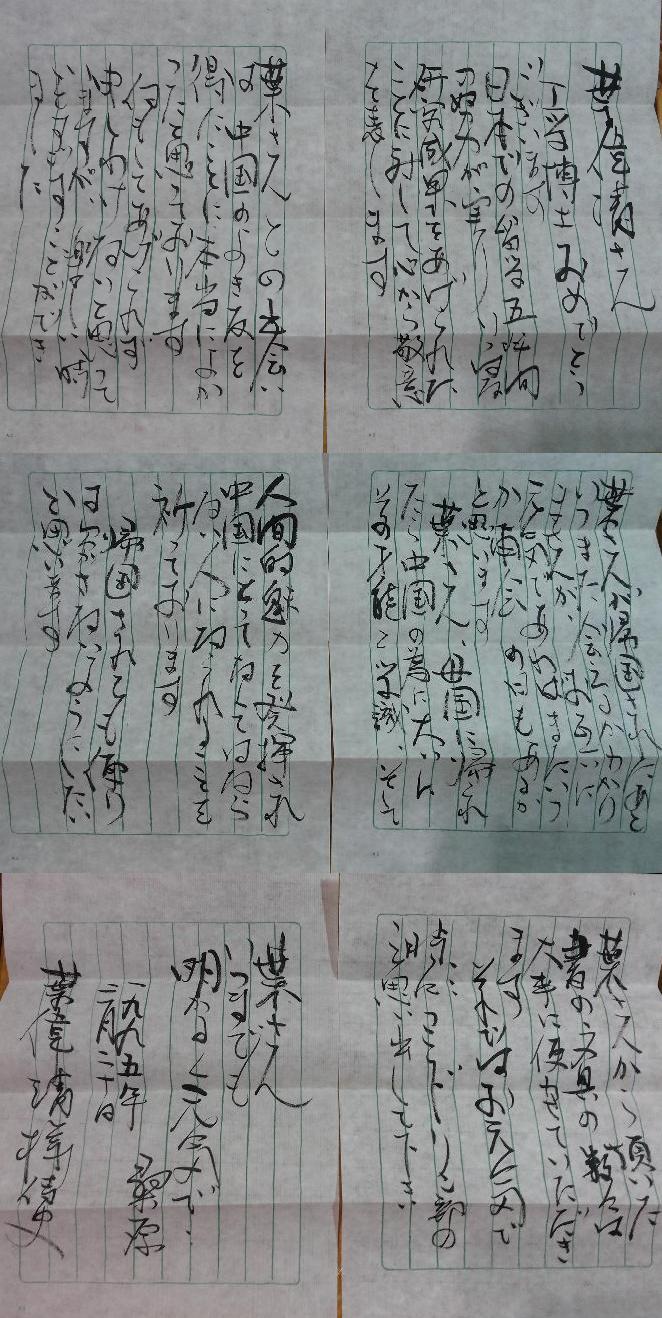 葉偉青さん
工学博士 おめでとう
ございます
日本での留学五年間
の努力が実り りっぱな
研究成果をあげられた
ことに対して心から敬意
を表します
葉さんとの出会い
は 中国のよき友を
得たことに 本当によか
ったと思っております
何もしてあげられず
申しわけないと思って
いますが、楽しい時
をすごすことができ
ました
葉さんが帰国されたあと
いつまた会えるかわかり
ませんが、お互いに
元気であればまたいつ
か再会 の日もあるか
と思います
葉さん、母国に帰れ
たら中国の為に大いに
その才能と学識、そして
人間的魅力を発揮され
中国にとってなくてはなら
ない人になられることを
祈っております
帰国されても便り
は欠かさないようにしたい
と思います
葉さんから頂いた
書の文具の数々は
大事に使わせていただき
ます
それではお元気で
たまに の
思い出して下さい
葉さん
いつまでも
明るく元気で…
一九九五年
三月二十日
桑原
葉偉青